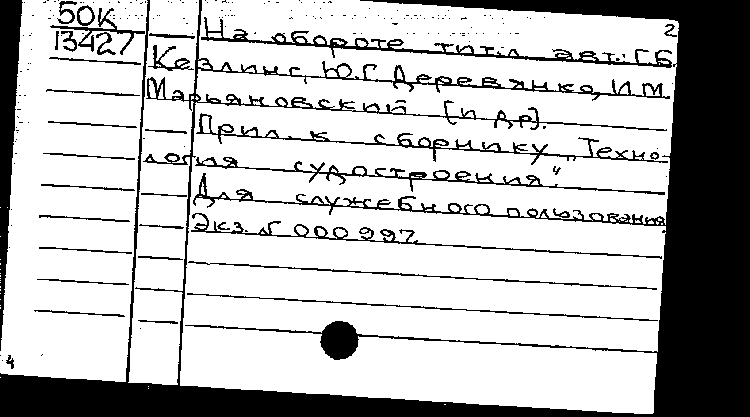 50К
13427
2
На обороте тит.л авт.: Г.Б.
Кезлинг, Ю.Г. Деревянко, И.М.
Марьяновский [и др].
Прил. к сборнику „Техно-
логия судостроения".
Для служебного пользования
Экз. № 000997.
4